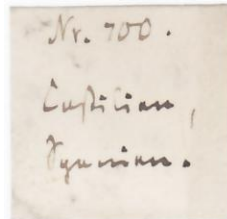 Nr. 700.
Castilien,
Spanien.